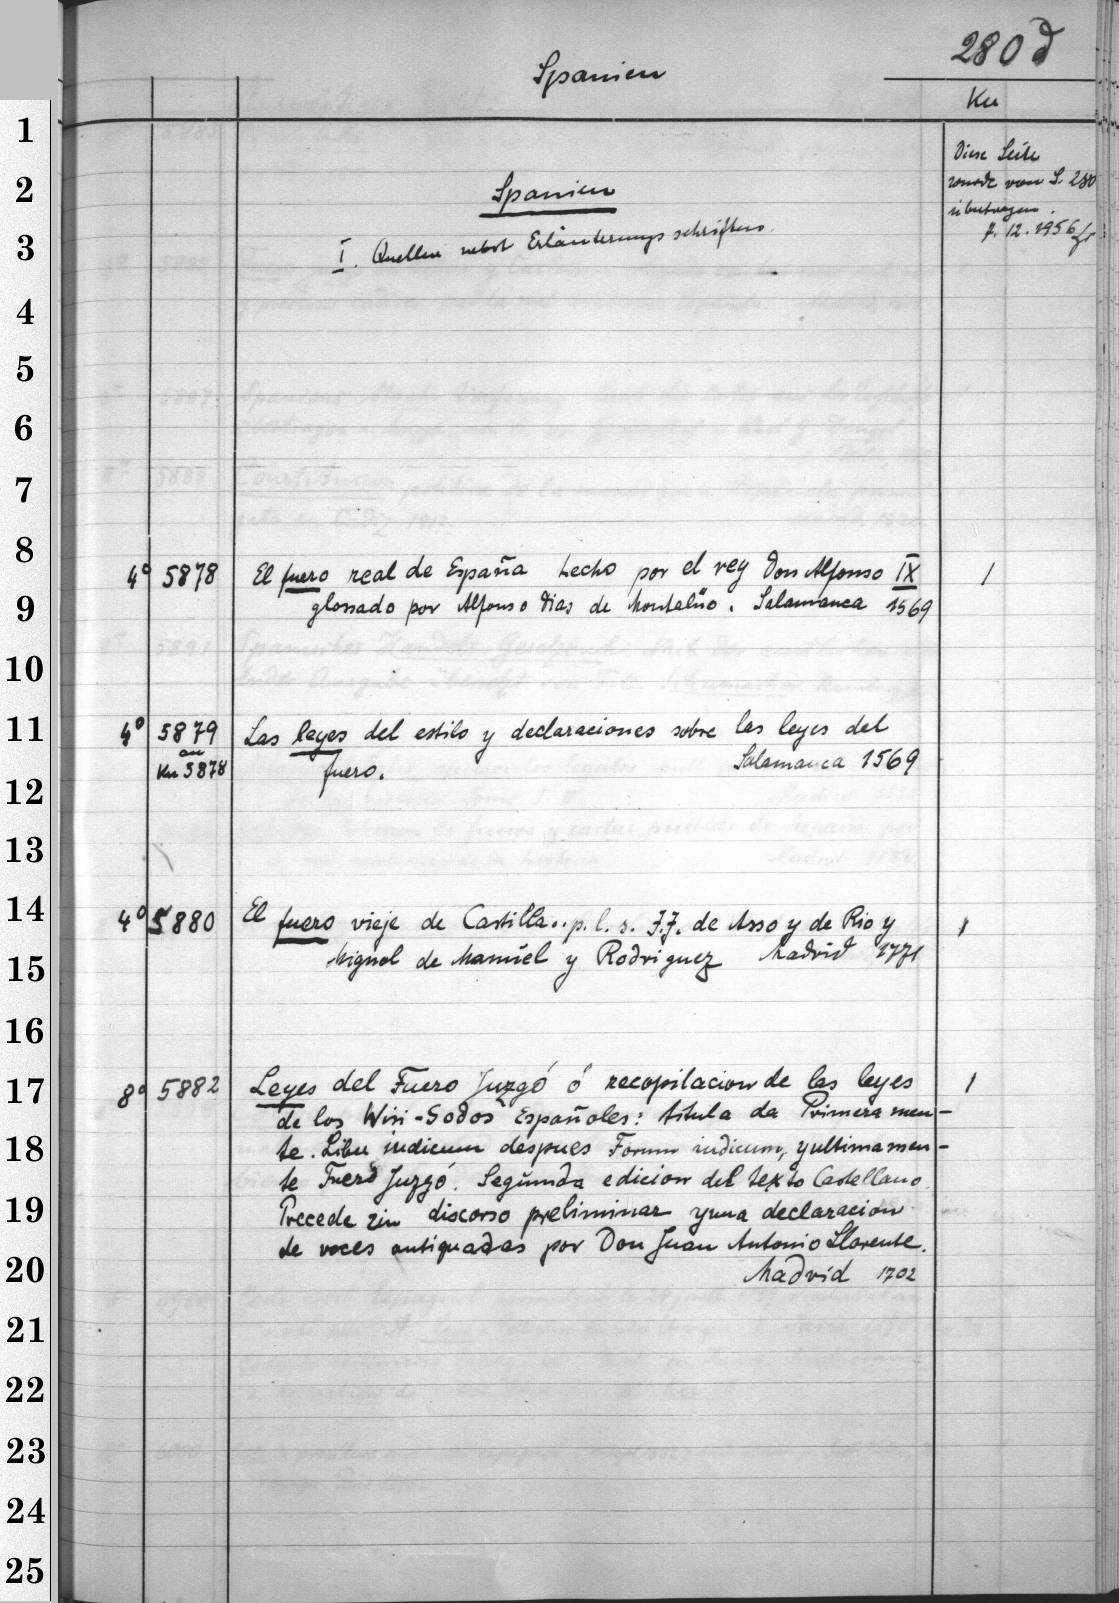 280d
Spanien
Ku
1
Diese Seite
2
Spanien
wurde von S. 280
übertragen.
3
I. Quellen nebst Erläuterungsschriften.
7.12.1956
4
5
6
7
8
4° 5878 El fuero real de España hecho por el rey Don Alfonso IX 1
9
glossado por Alfonso Dias de Montalŭo. Salamanca 1569
10
11
4° 5879 Las leyes del estilo y declaraciones sobre las leyes del
an
Ku 5878 fuero. Salamanca 1569
12
13
14
4° 5880 El fuero vieje de Castilla.. p. l. s. J.J. de Asso y de Rio y 1
15
Miguel de Manŭel y Rodriguez Madrid 1771
16
17
8° 5882 Leyes del Fuero Juzgó ó recopilacion de las leyes 1
de los Wisi-Godos Españoles: titula da Primeramen-
18
te. Liber iudicum despues Forum iudicum, y ultimamen-
te Fuero Juzgó. Segŭnda edicion del texto Castellano.
19
Precede un discorso preliminar y una declaracion
de voces antiquadas por Don Juan Antonio Llorente.
20
Madrid 1702
21
22
23
24
25